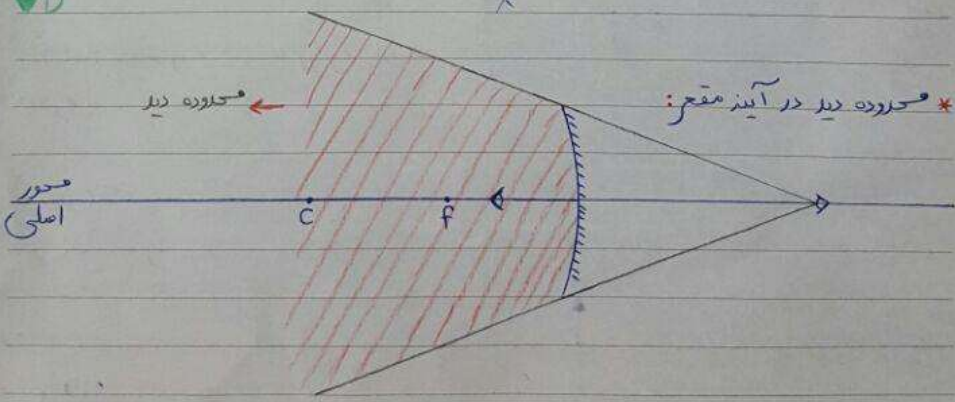 * محدوده دید در آینه مقعر:
محدوده دید
محور
اصلی
C
F